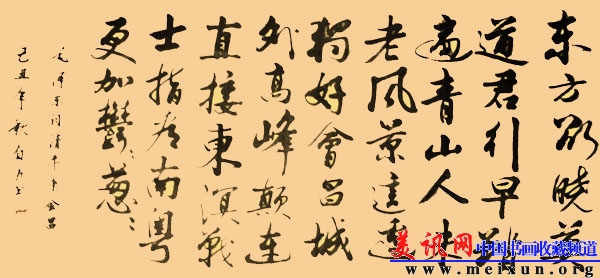 东方欲晓莫
道君行早踏
遍青山人未
老风景這邊
獨好會昌城
外高峰颠连
直接東溟戰
士指看南粤
更加鬱々葱々
毛泽东词清平乐会昌
己丑年秋
美讯网 中国书画收藏频道
www.meixun.org